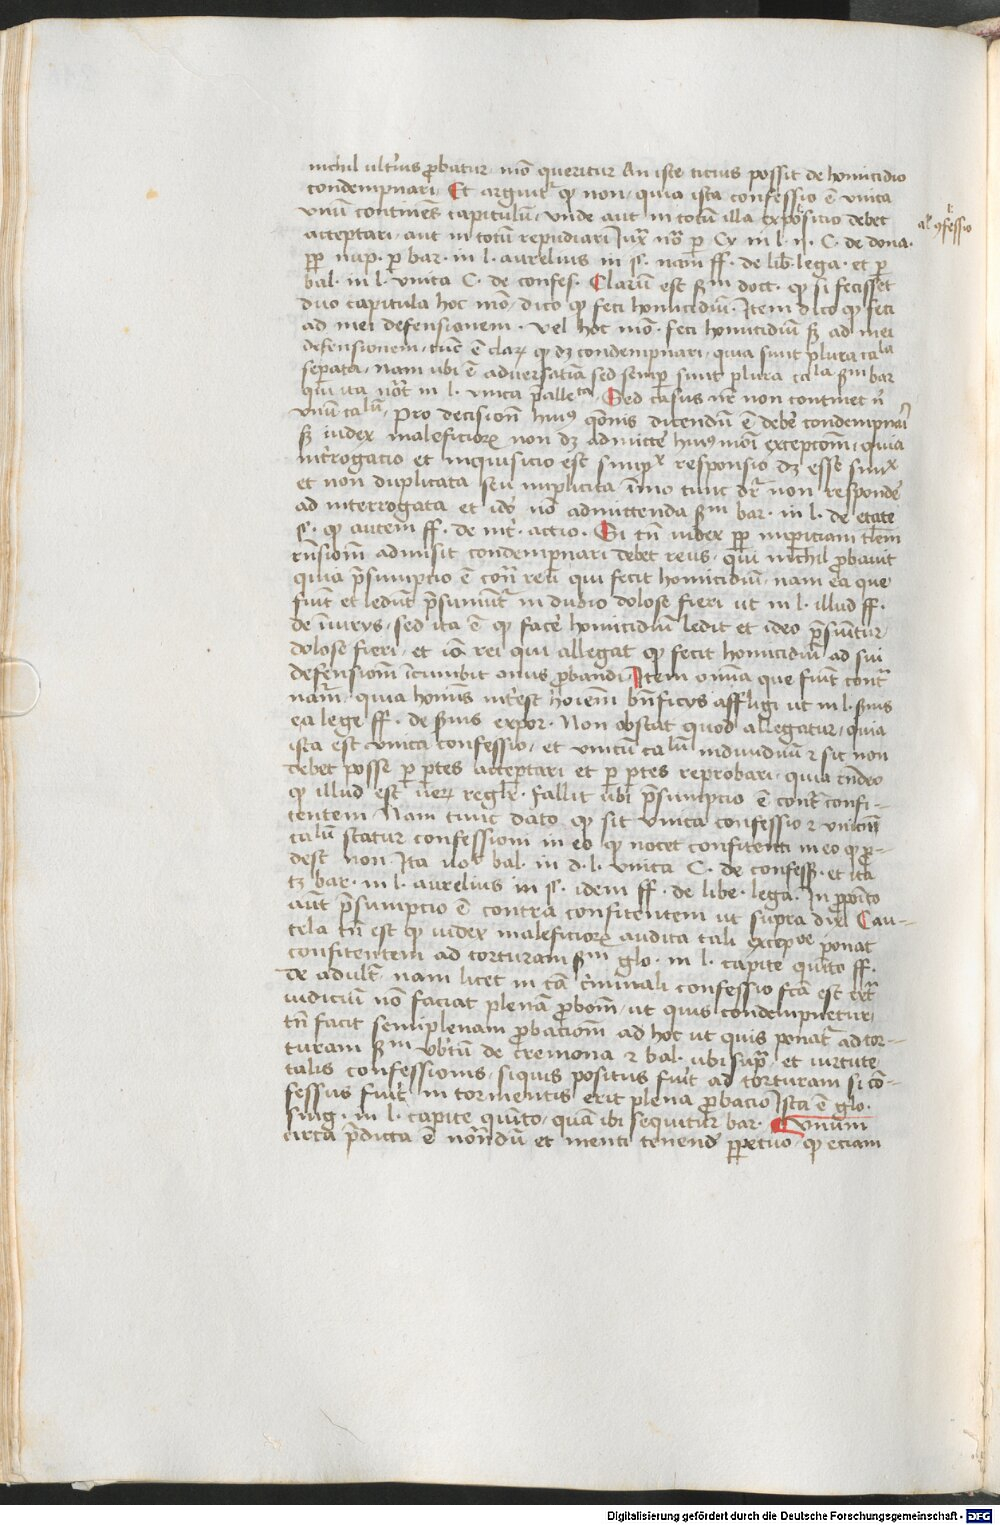 nichil ulterius ꝓbatur mō queritur An iste titius possit de homicidio
condempnari / Et arguitʳ ꝙ non / quia ista confessio ē vnica
vnū continēs capitulū / vnde aut in totū illa expositio debet
al' ꝯfessio
acceptari / aut in totū repudiari Iuxᵃ noᵗ ꝑ Cy in l. ij. C. de dona.
ꝓp nup. ꝑ bar. in l. aurelius in §. nam̄ ff. de lib. lega. et ꝑ
bal. in l. vnica C. de confes. Clarum est ẜm doct. ꝙ si fecisset
duo capitula hoc mō / dico ꝙ feci homicidiū. Item dico ꝙ feci
ad mei defensionem. vel hoc mō. feci homicidiū ẜꝫ ad mei
defensionem / tūc ē clarꝫ ꝙ dꝫ condempnari / quia sunt plura caˡᵃ
sepata / Nam ubi ē adversatiua sed semꝑ sunt plura caˡᵃ ẜm bar
qui ita noᵗ in l. vnica p̄alleᵗᵃ / Sed casus nr̄ non continet nⁱ
vnū caˡū / pro decisiōn huiꝰ q̄onis dicendū ē debē condempnari
ẜꝫ iudex maleficiorꝫ non dꝫ admittē huiꝰmōi exceptōm / quia
int̄rogacio et inquisicio est simpˣ responsio dꝫ esse simˣ
et non duplicata seu implicita īmo tunc dr̄ non respondē
ad interrogata et idō nō admittenda ẜm bar. in l. de etate
§. ꝙ autem ff. de int̄. actio. Si tn̄ iudex ꝓp impiciam tlem
rn̄siom̄ admisit condempnari debet reus / qui nichil ꝓbauit
quia p̄sumpcio ē cont̄ reū qui fecit homicidiū / nam ea que
fiūt et ledūt p̄sumūtʳ in dubio dolose fieri ut in l. illud ff.
de iniurijs / sed ita ē ꝙ facē homicidiū ledit et ideo p̄sumitur
dolose fieri / et iō rei qui allegat ꝙ fecit homicidiū ad sui
defensiom̄ incumbit onus ꝓbandi / Item omīa que fiūt contᵃ
natᵃm / quia homīs int̄est hōiem bn̄ficijs affligi ut in l. ẜuus
ea lege ff. de ẜuis expor. Non obstat quod allegatur / quia
ista est vnica confessio / et vnicū caˡū indiuiduū ⁊ sic non
debet posse ꝑ ꝑtes acceptari et ꝑ ꝑtes reprobari / quia rn̄deo
ꝙ illud est uerꝫ regl'r. fallit ubi p̄sumpcio ē contᵃ confi-
tentem / Nam tunc dato ꝙ sit vnica confessio ⁊ vnicū
caˡū statur confessioni in eo ꝙ nocet confitenti in eo ꝙ ꝓ-
dest non Ita noᵗ bal. in d. l. vnica C. de confess. et ita
tꝫ bar. in l. aurelius in §. idem ff. de libe. lega. In ꝓposito
aut p̄sumpcio ē contra confitentem ut supra dixi Cau-
tela tn̄ est ꝙ iudex maleficiorꝫ audita tali excepᵒe ponat
confitentem ad torturam ẜm glo. in l. capite quīto ff.
de adult̄. nam licet in cā c'minali confessio fcā extᵃ
iudicium nō faciat plenā ꝓbom̄ / ut quis condempnetur /
tn̄ facit semiplenam ꝓbaciom̄ ad hoc ut quis ponatʳ ad tor-
turam ẜm vb'tū de cremona ⁊ bal. ubi supᵃ / et virtute
talis confessionis / siquis positus fuīt ad torturam si cō-
fessus fuīt in tormentis erit plena ꝓbacio Ista ē glo.
sing. in l. capite quīto / quā ibi sequitur bar. Vnum
circa p̄dicta ē notādū et menti tenend' ꝑpetuo / ꝙ eciam
Digitalisierung gefördert durch die Deutsche Forschungsgemeinschaft - DFG